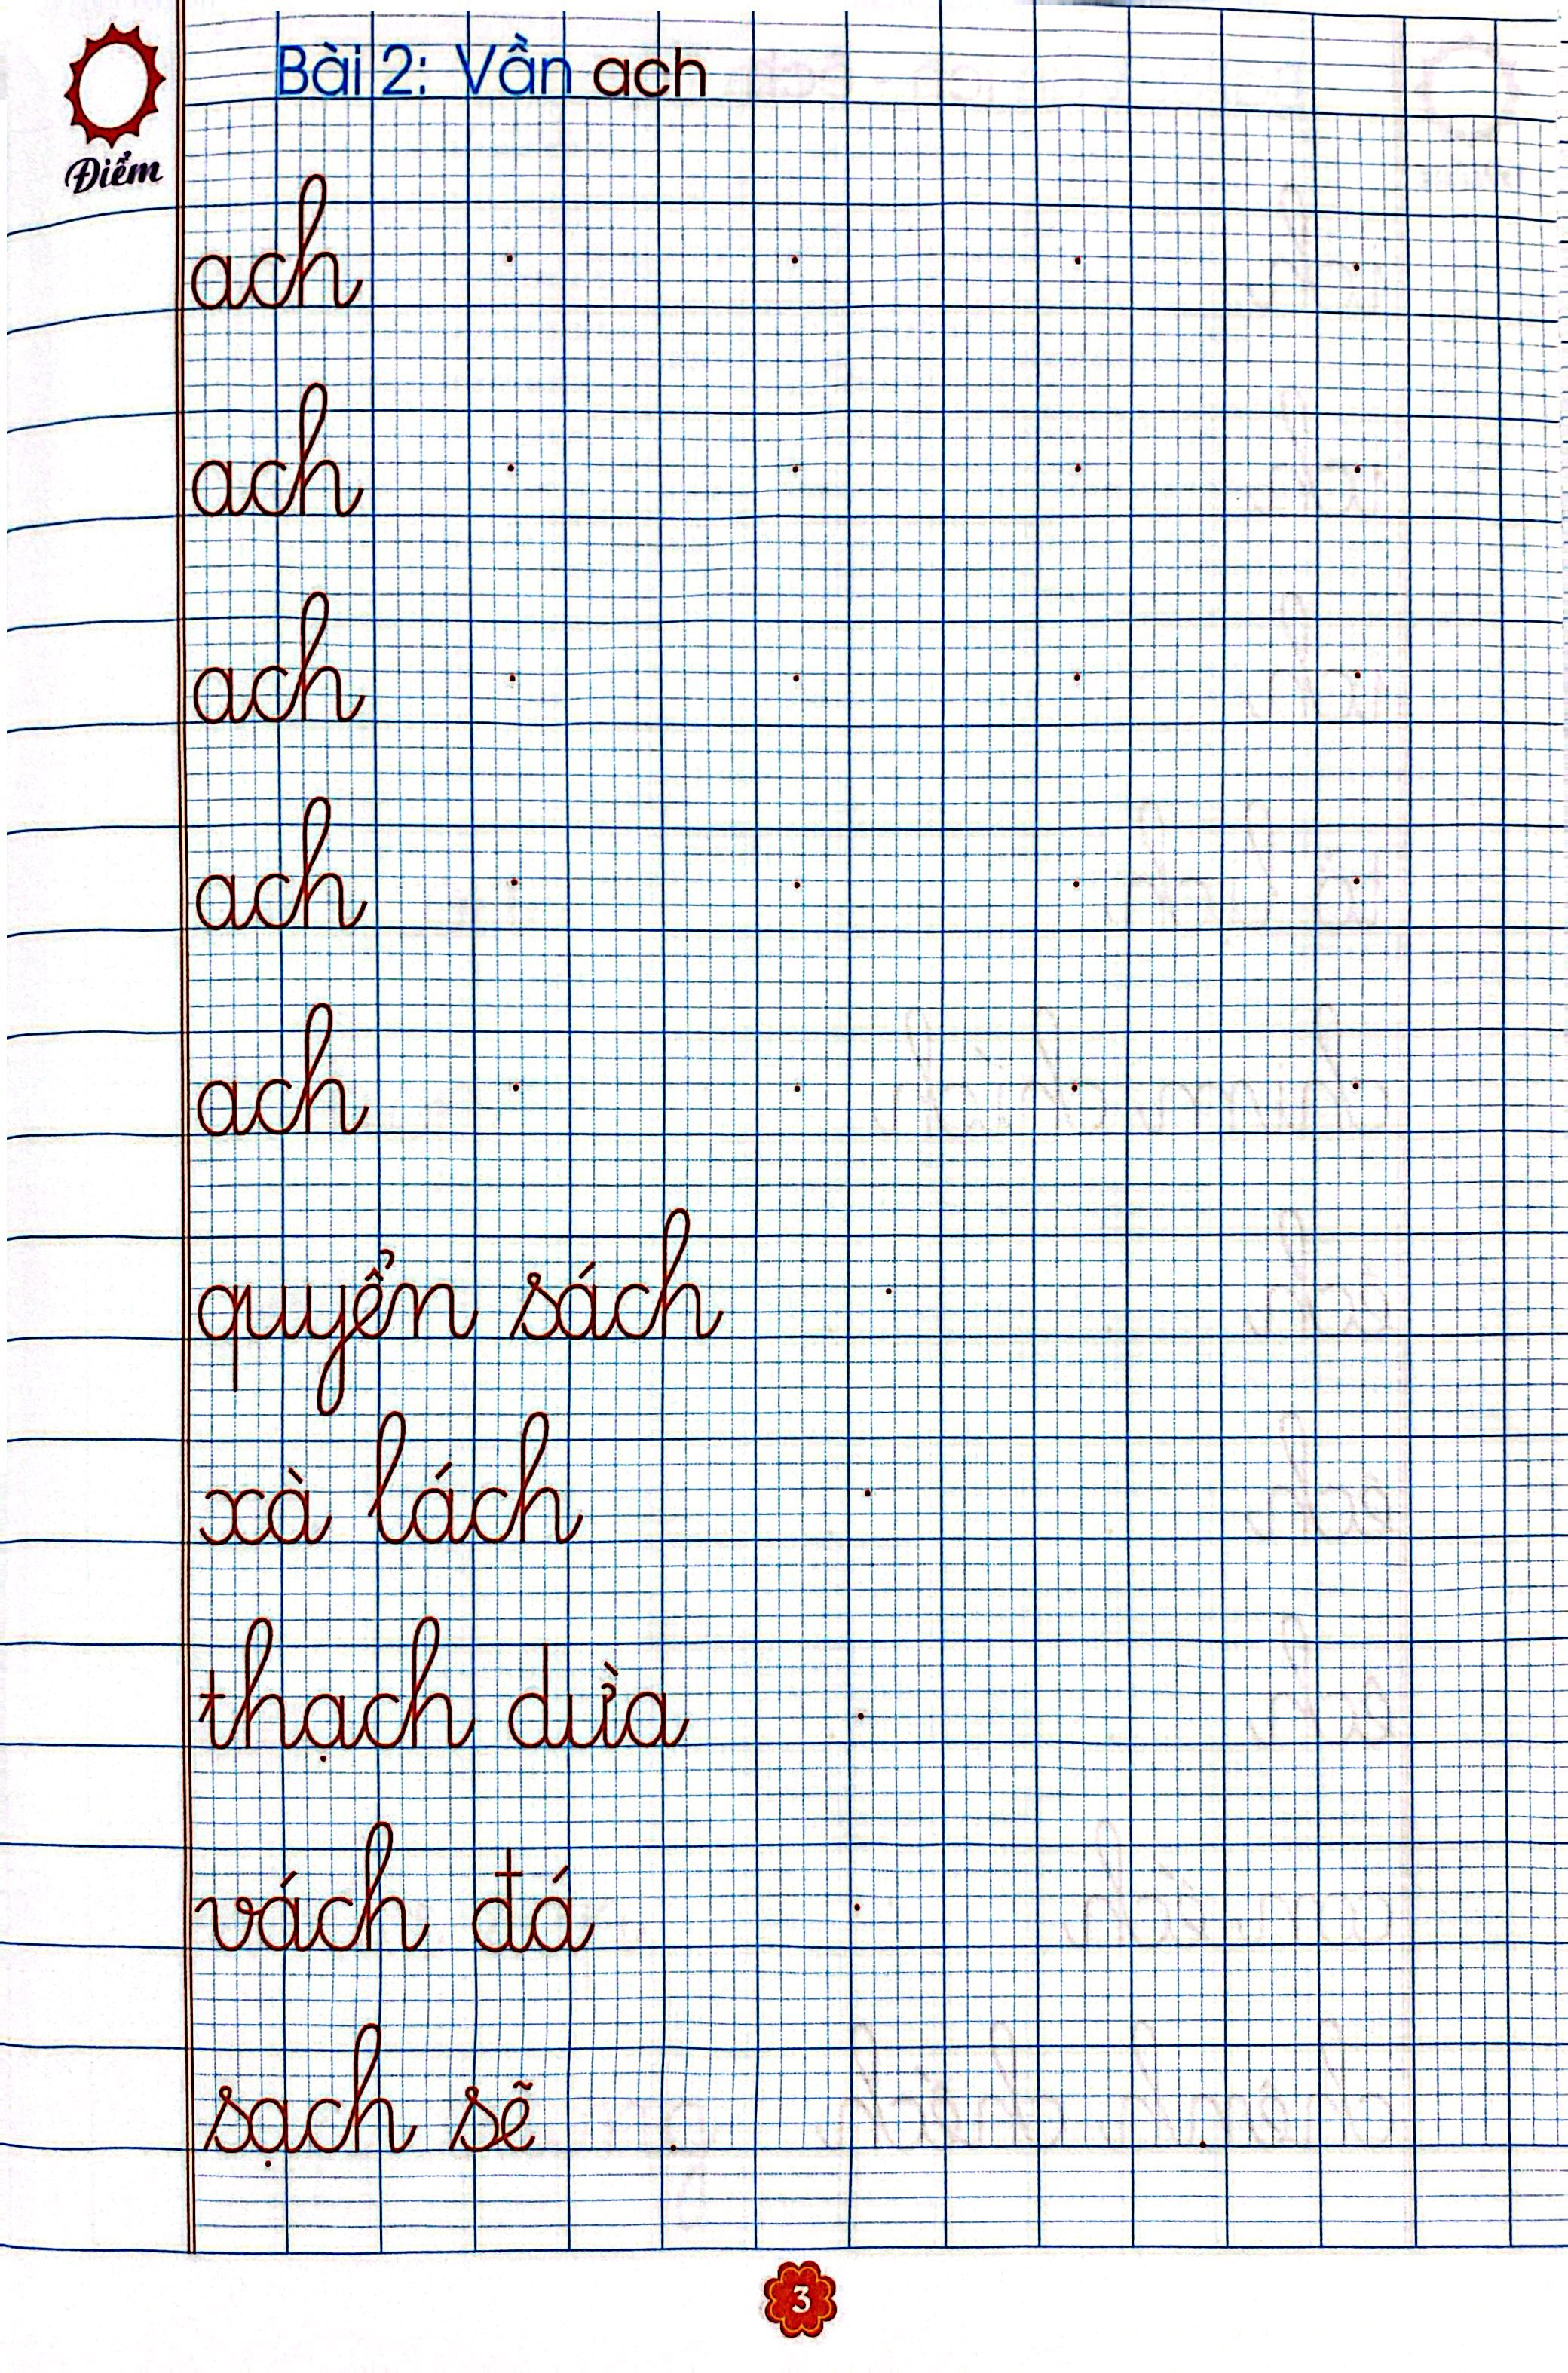 Bài 2: Vần ach
Điểm
ach
ach
ach
ach
ach
quyển sách
xà lách
thạch dừa
vách đá
sạch sẽ
3